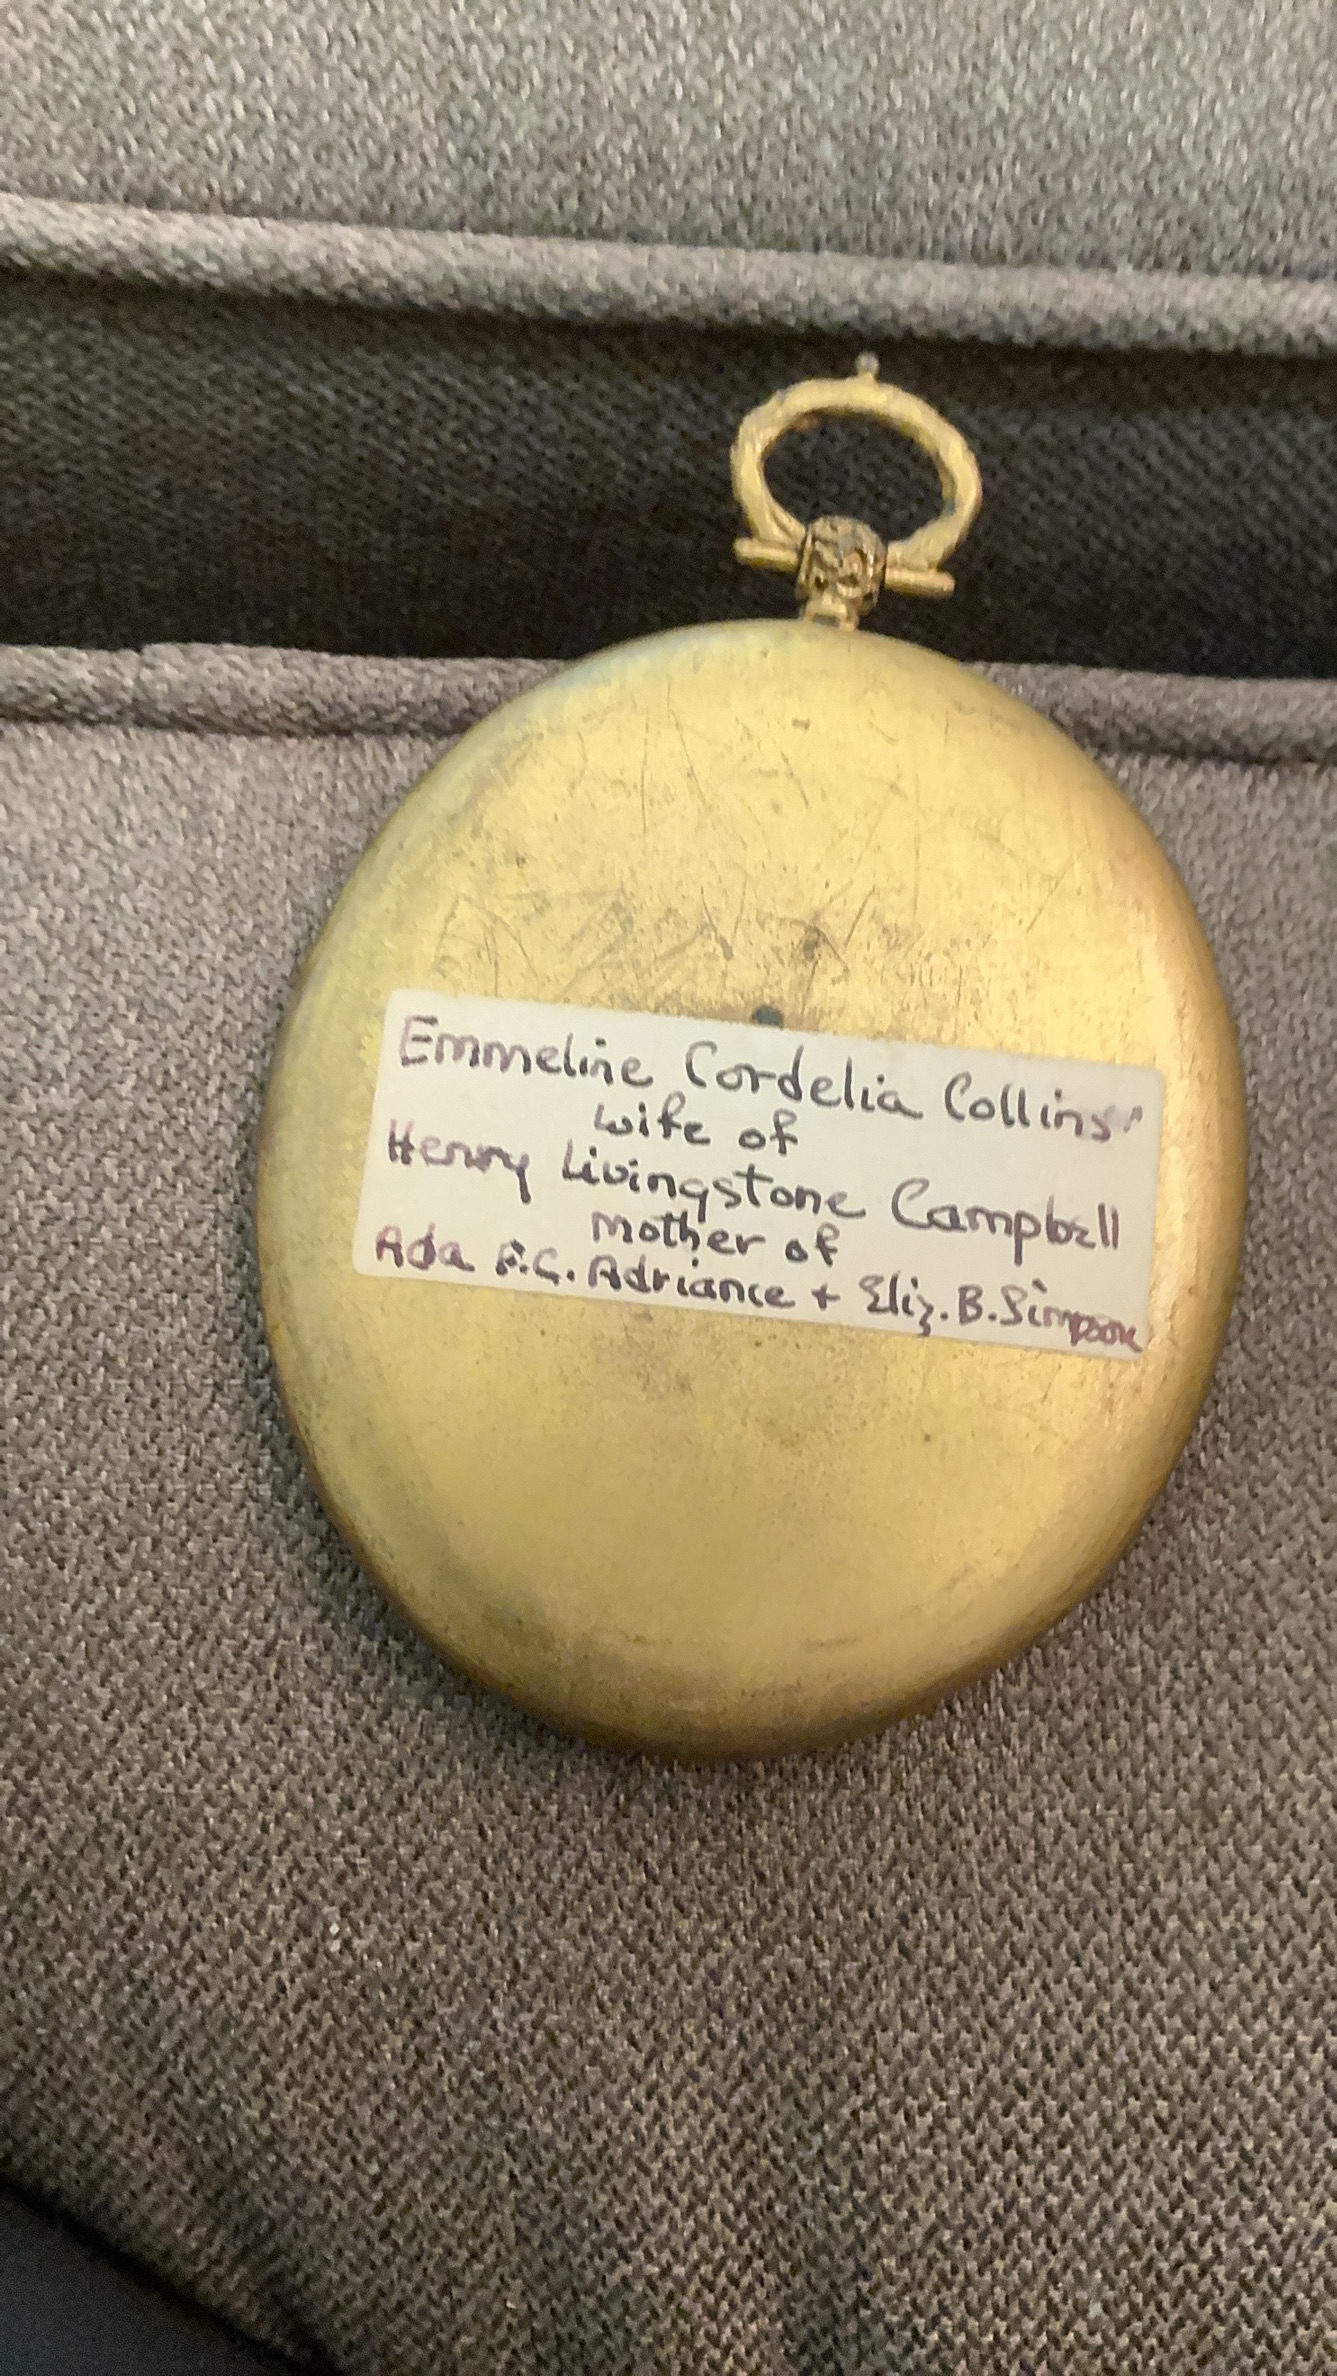 Emmeline Cordelia Collins
wife of
Henry Livingstone Campbell
mother of
Ada F.C. Adriance + Eliz. B. Simpson